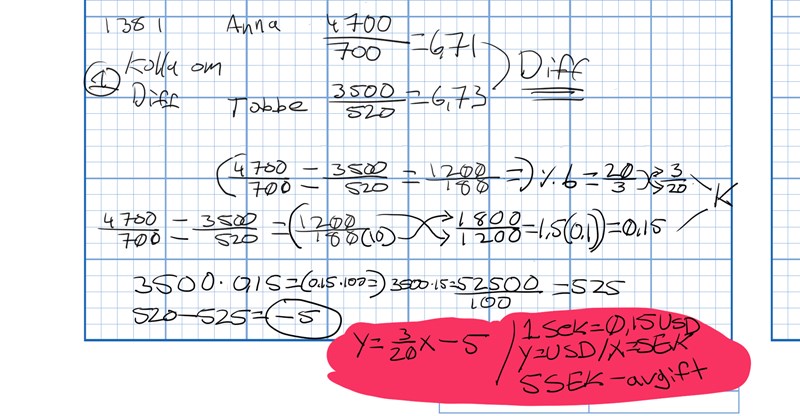 1381 Anna 4700/700 = 6,71
① Kolla om Diff Diff
Tobbe 3500/520 = 6,73
(4700/700 - 3500/520 = 1200/180 =) ٪ 6 = 20/3) 3/20 K
4700/700 - 3500/520 = (1200/180(10) 1800/1200 = 1,5(0,1) = 0,15
3500 · 0,15 = (0,15 · 100 =) 3500 · 15 = 52500/100 = 525
520 - 525 = -5
y = 3/20 x - 5 / 1 SEK = 0,15 USD
y = USD / x = SEK
5 SEK - avgift